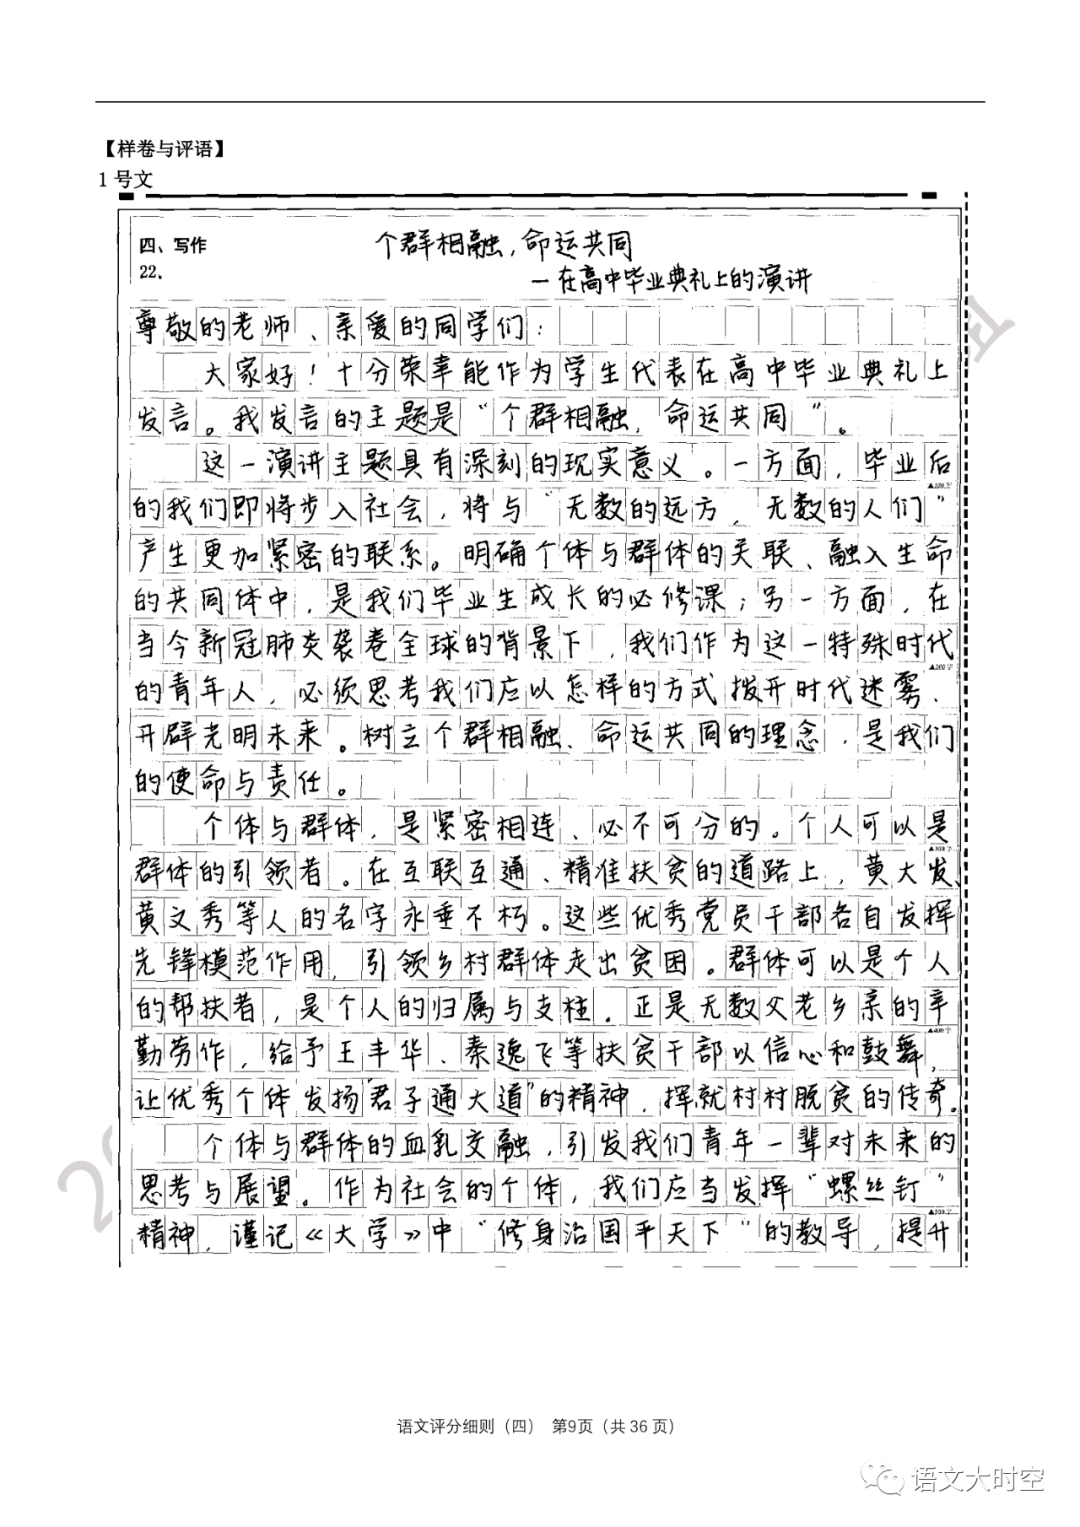 【样卷与评语】
1 号文
四、写作
22.
个群相融，命运共同
—在高中毕业典礼上的演讲
尊敬的老师、亲爱的同学们：
大家好！十分荣幸能作为学生代表在高中毕业典礼上
发言。我发言的主题是“个群相融，命运共同”。
这一演讲主题具有深刻的现实意义。一方面，毕业后
的我们即将步入社会，将与“无数的远方，无数的人们”
产生更加紧密的联系。明确个体与群体的关联、融入生命
的共同体中，是我们毕业生成长的必修课；另一方面，在
当今新冠肺炎袭卷全球的背景下，我们作为这一特殊时代
的青年人，必须思考我们应以怎样的方式拨开时代迷雾、
开辟光明未来。树立个群相融、命运共同的理念，是我们
的使命与责任。
个体与群体，是紧密相连、必不可分的。个人可以是
群体的引领者。在互联互通、精准扶贫的道路上，黄大发、
黄文秀等人的名字永垂不朽。这些优秀党员干部各自发挥
先锋模范作用，引领乡村群体走出贫困。群体可以是个人
的帮扶者，是个人的归属与支柱。正是无数父老乡亲的辛
勤劳作，给予王丰华、秦逸飞等扶贫干部以信心和鼓舞，
让优秀个体发扬“君子通大道”的精神，挥就村村脱贫的传奇。
个体与群体的血乳交融，引发我们青年一辈对未来的
思考与展望。作为社会的个体，我们应当发挥“螺丝钉”
精神，谨记《大学》中“修身治国平天下”的教导，提升
语文评分细则（四） 第9页（共 36 页）
语文大时空